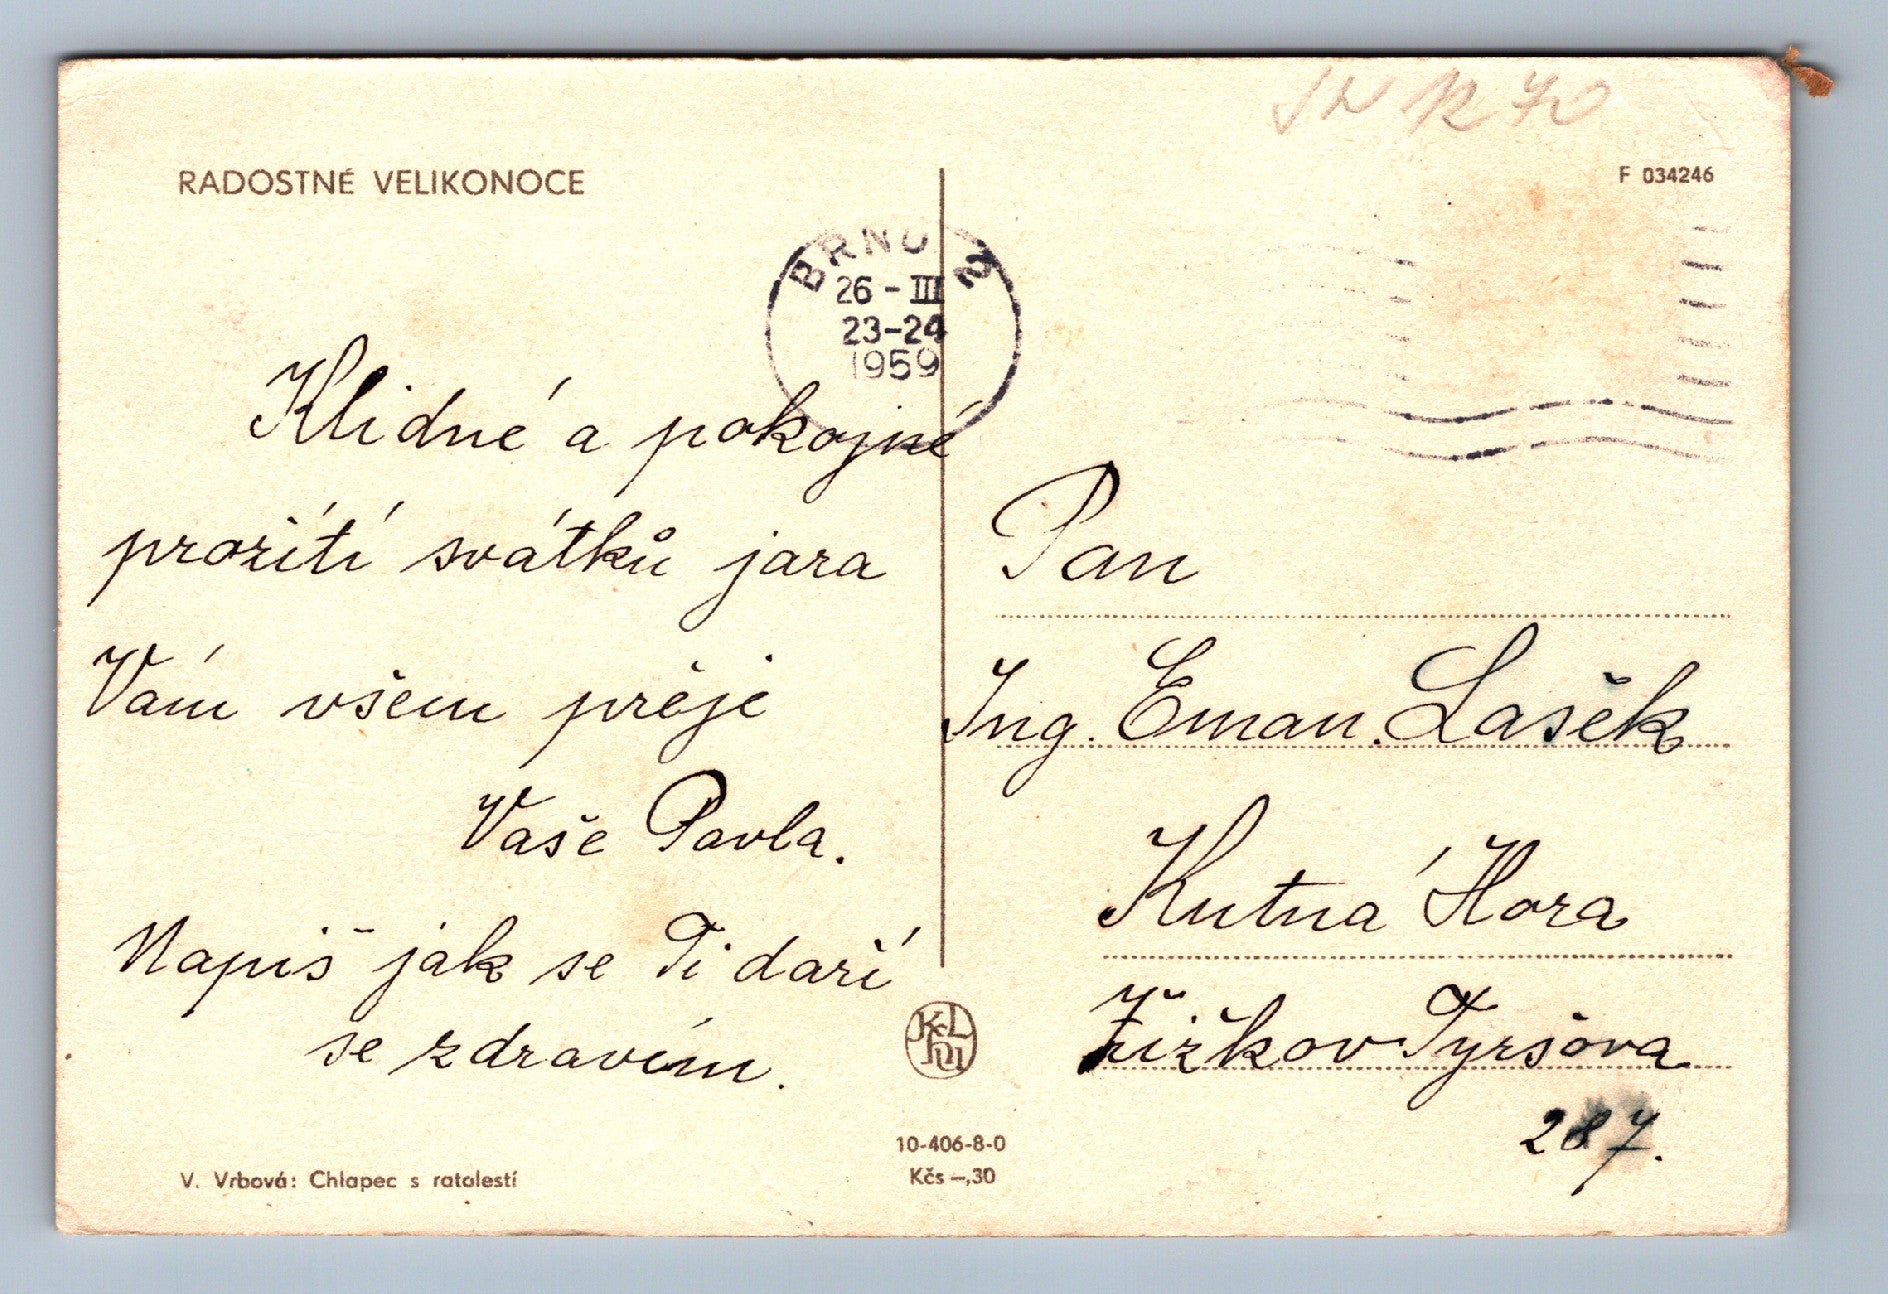 RADOSTNÉ VELIKONOCE
F 034246
BRNO 2
26-III
23-24
1959
Klidné a pokojné
prožití svátků jara
Vám všem přeje
Vaše Pavla.
Napiš jak se Ti daří
se zdravím.
Pan
Ing. Eman. Lašek
Kutná Hora
Žižkov Tyršova
287.
10-406-8-0
Kčs –,30
V. Vrbová: Chlapec s ratolestí